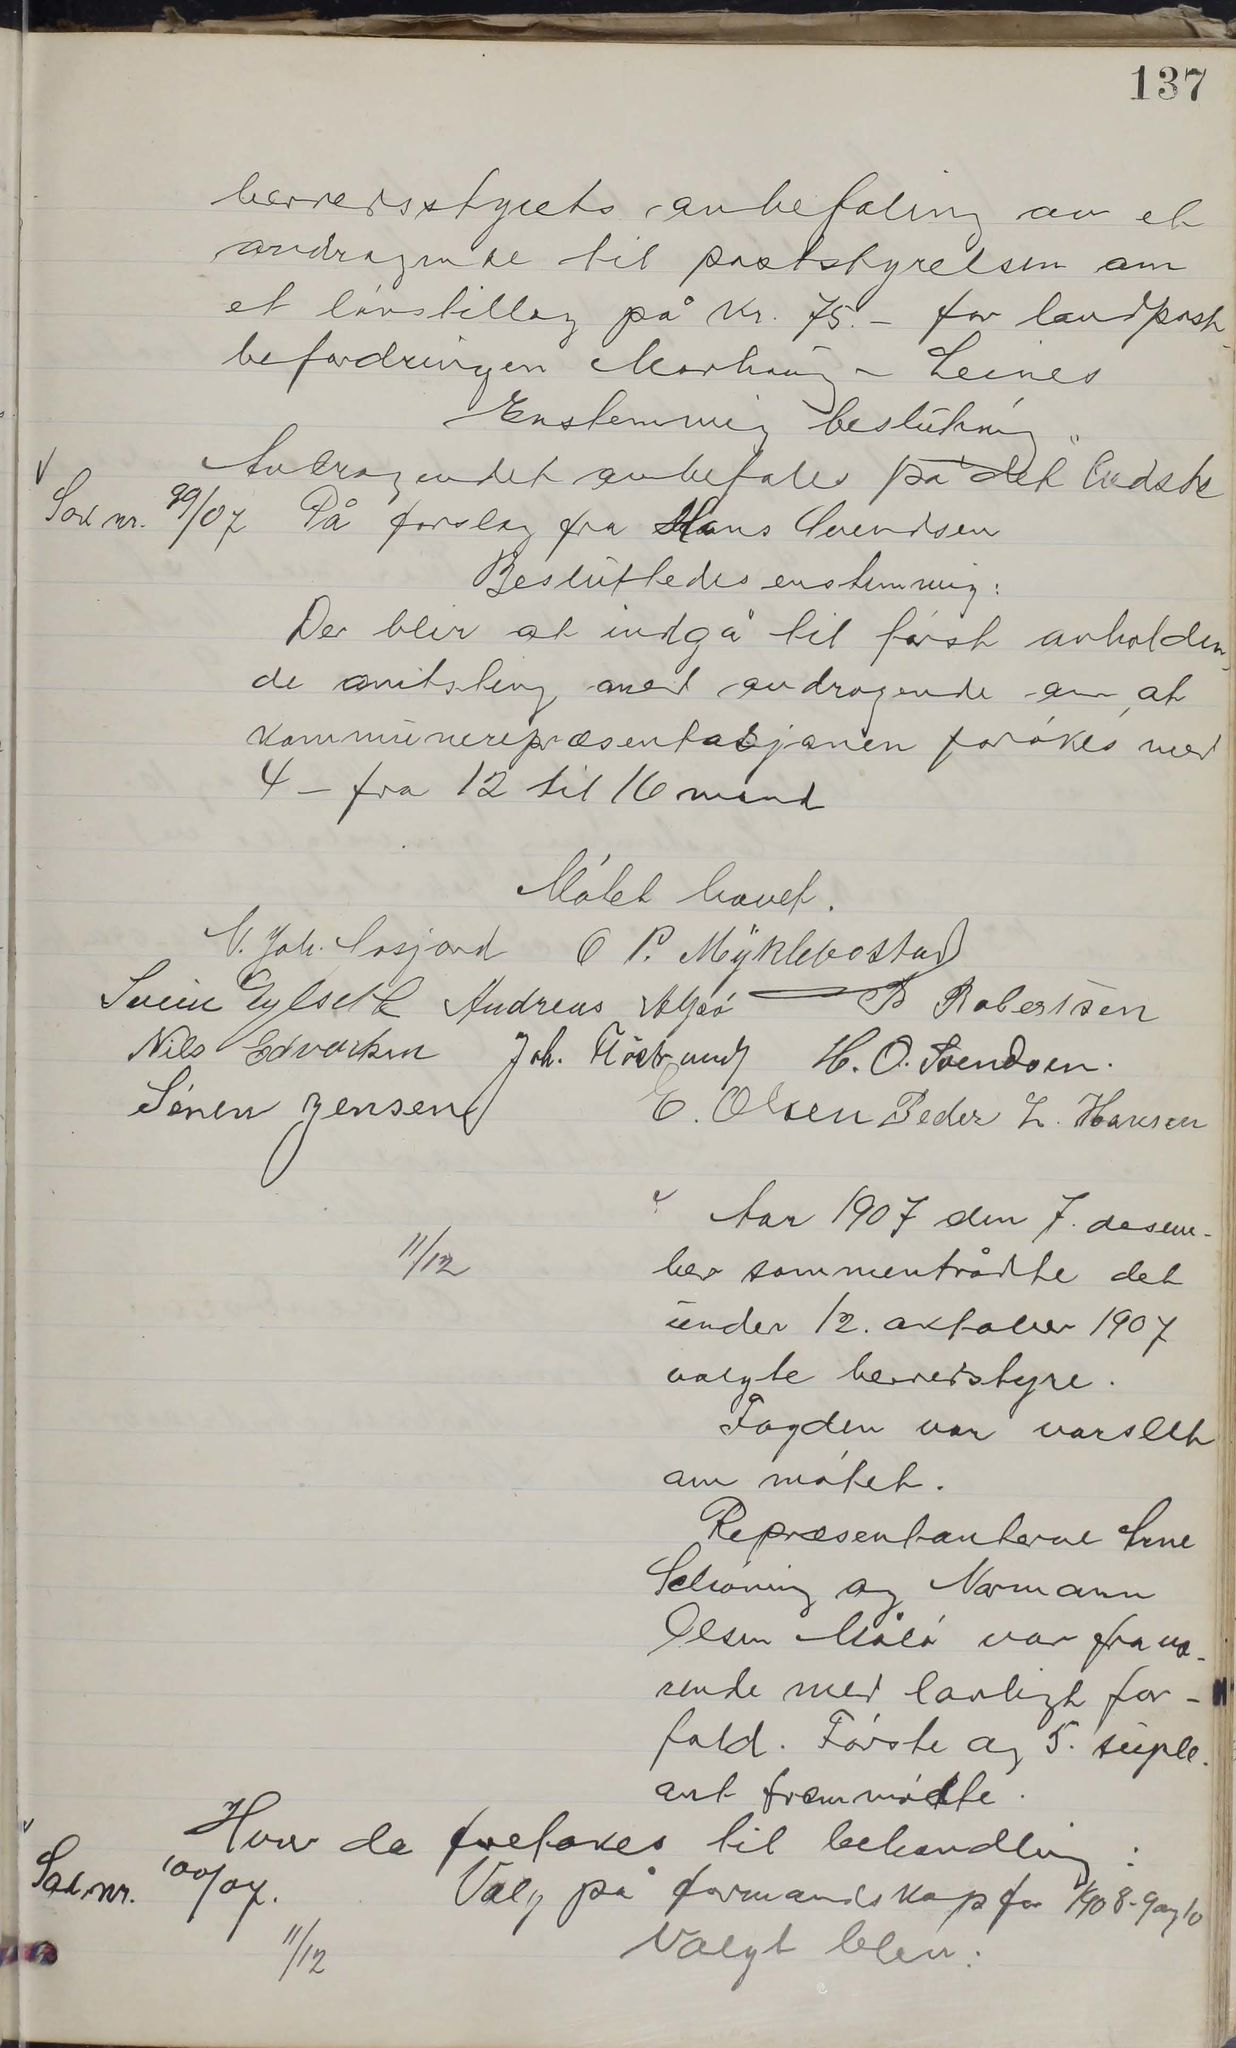 137
herredsstyrets anbefaling av et
andragende til poststyrelsen om
et lönstillæg på kr. 75.- for landpost-
befordringen Morhaug - Leines
Enstemmig beslutning
Andragendet anbefales på det bedste
Sak nr. 99/07 På forslag fra Hans Svendsen
Besluttedes enstemmig:
Der blir at indgå til först avholden-
de amtsting med andragende om at
kommunerepræsentasjonen forökes med
4 - fra 12 til 16 mand
Mötet hævet.
N. Joh. Løsjord O P. Myklebostad
Svein Gylseth Andreas B Robertsen
Nils Edvarsen Joh. H. O. Svendsen.
Sören Jensen E. Olsen Peder L. Hansen
Aar 1907 den 7. desem-
11/12
ber sammentrådte det
under 12. oktober 1907
valgte herredstyre.
Fogden var varslet
om mötet.
Repræsentanterne Arne
Schöning og Normann
Olsen Målö var fravæ-
rende med lovligt for-
fald. Förste og 5. suple-
ant frammödte.
Hvor da foretokes til behandling:
Sak nr. 100/07. Valg på formandskap for 1908-9 og 10
11/12 Valgt blev: